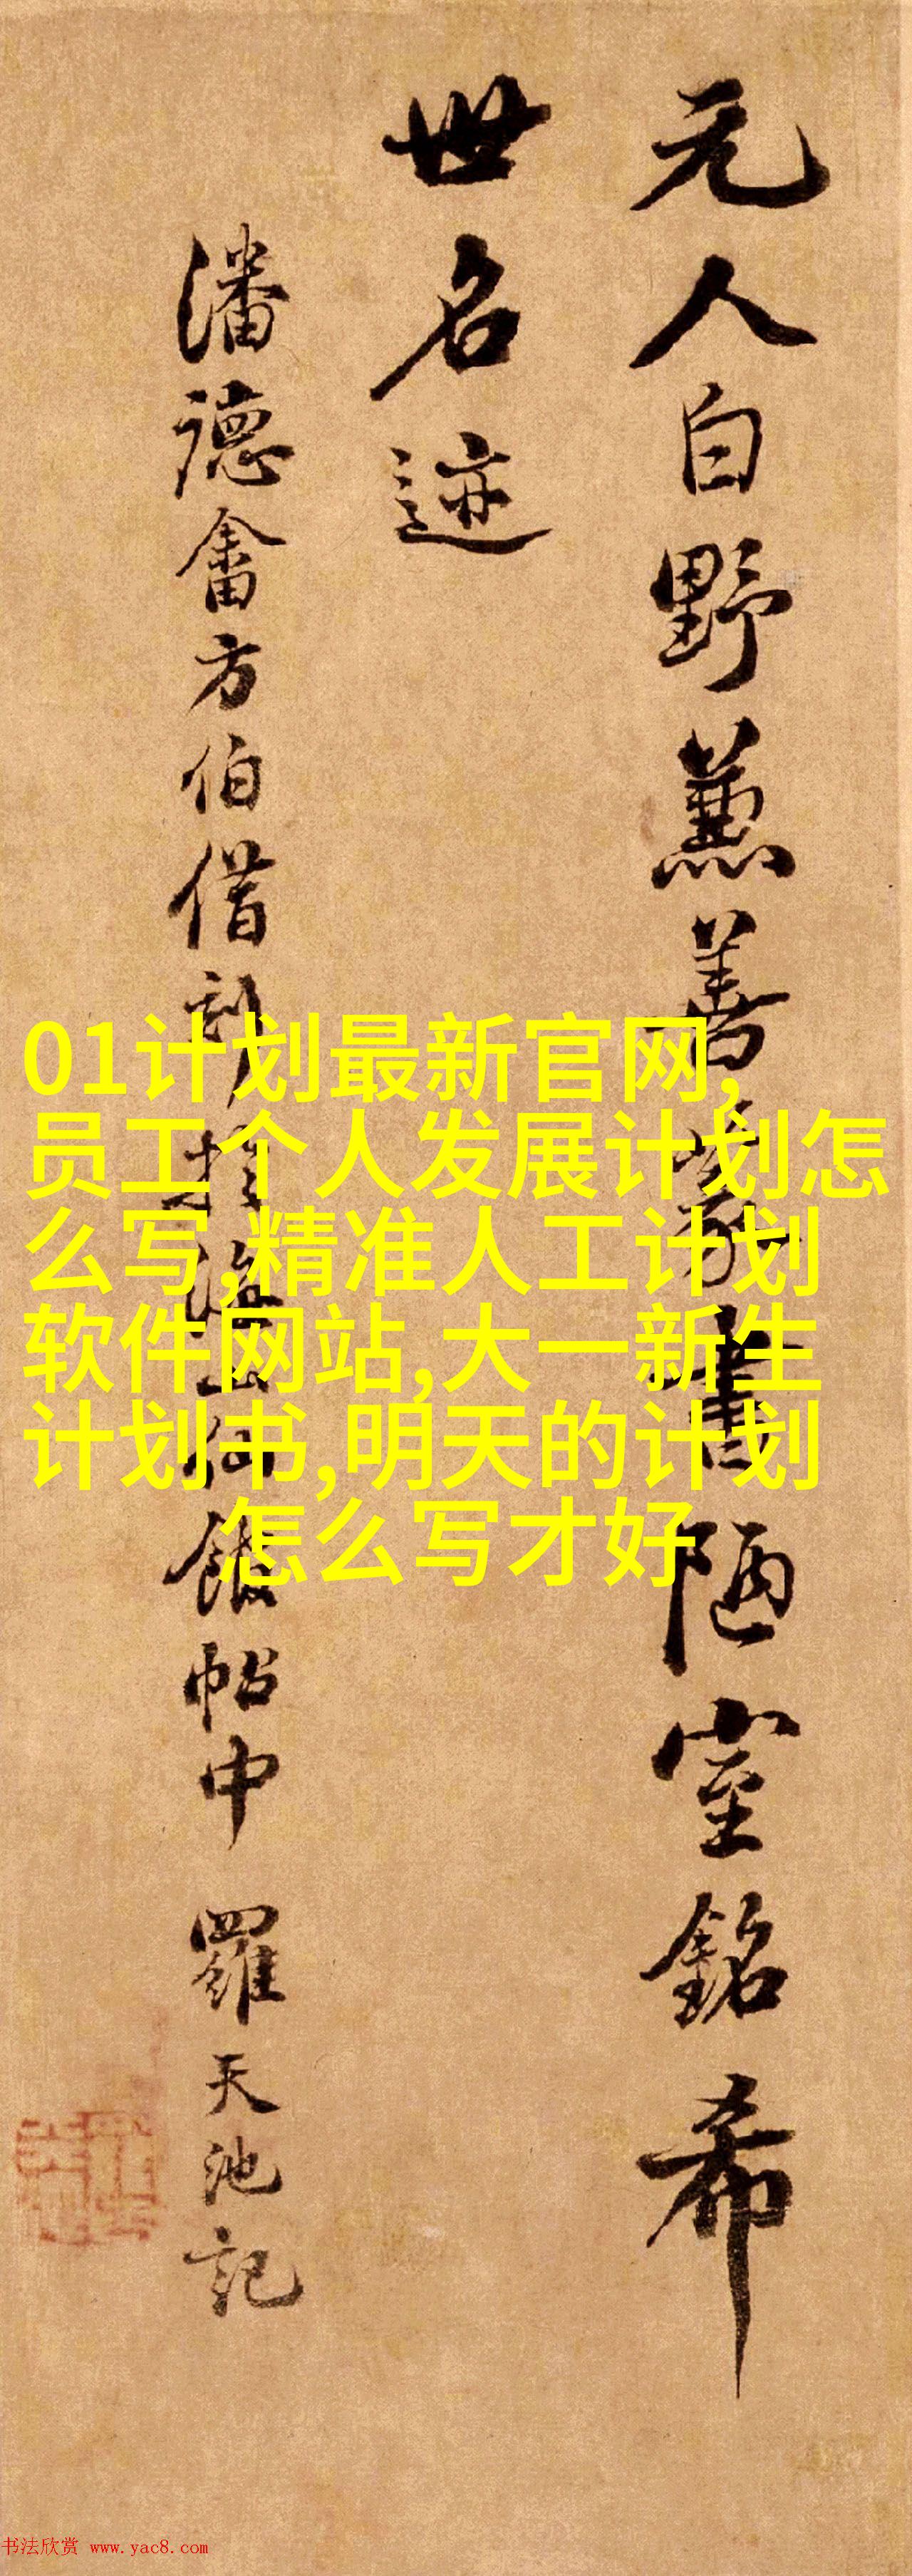 元人白野蕙善篆書陋室銘希
世名迹
潘德畬方伯借刻於海山仙館帖中 羅天池記
01计划最新官网,
员工个人发展计划怎
么写,精准人工计划
软件网站,大一新生
计划书,明天的计划
怎么写才好
书法欣赏 www.yac8.com